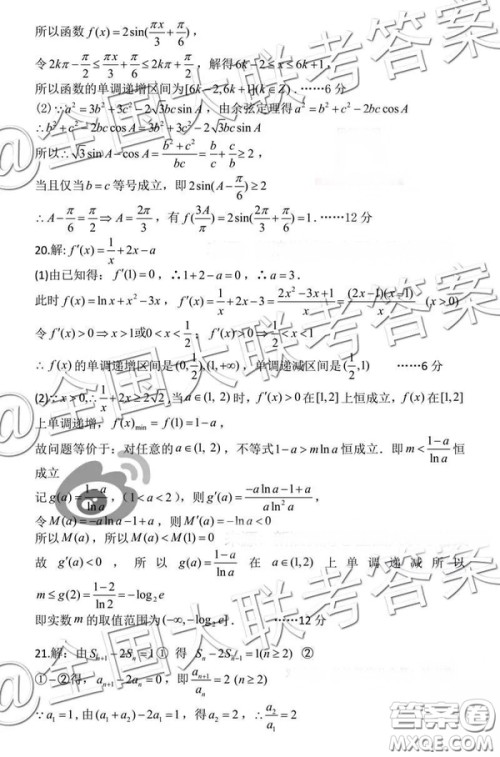 所以函数 f(x)=2sin(πx/3+π/6)，
令2kπ−π/2≤πx/3+π/6≤2kπ+π/2，解得6k−2≤x≤6k+1，
所以函数的单调递增区间为[6k−2,6k+1](k∈Z)．……6 分
⑵∵a²=3b²+3c²−2√3bcsinA．由余弦定理得a²=b²+c²−2bccosA
∴b²+c²−2bccosA=3b²+3c²−2√3bcsinA
所以∴√3sinA−cosA=(b²+c²)/bc=b/c+c/b≥2，
当且仅当b=c等号成立，即2sin(A−π/6)≥2
∴A−π/6=π/2⇒A=2π/3，有f(3A/π)=2sin(2π/3+π/6)=1．……12 分
20.解: f′(x)=1/x+2x−a
(1)由已知得：f′(1)=0，∴1+2−a=0，∴a=3．
此时 f(x)=lnx+x²−3x，f′(x)=1/x+2x−3=(2x²−3x+1)/x=(2x−1)(x−1)/x (x>0)
令f′(x)>0⇒x>1或0<x<1/2；f′(x)<0⇒1/2<x<1
∴f(x)的单调递增区间是(0,1/2),(1,+∞)，单调递减区间是(1/2,1) ……6 分
(2)∵x>0,∴1/x+2x≥2√2,当a∈(1, 2)时，f′(x)>0在[1,2]上恒成立，f(x)在[1,2]
上单调递增，f(x)min=f(1)=1−a，
故问题等价于：对任意的a∈(1, 2)，不等式1−a>mlna恒成立．即m<(1−a)/lna恒
成立
记g(a)=(1−a)/lna，（1<a<2），则g′(a)=(−alna−1+a)/(aln²a)，
令M(a)=−alna−1+a，则M′(a)=−lna<0
所以M(a)，所以M(a)<M(1)=0
故g′(a)<0，所以g(a)=(1−a)/lna在a∈(1,2)上单调递减所以
m≤g(2)=(1−2)/ln2=−log₂e
即实数m的取值范围为(−∞,−log₂e]． ……12 分
21.解：由Sₙ₊₁−2Sₙ=1① 得 Sₙ−2Sₙ₋₁=1(n≥2) ②
①−②得，aₙ₊₁−2aₙ=0，即aₙ₊₁/aₙ=2 (n≥2)
∵a₁=1,由(a₁+a₂)−2a₁=1，得a₂=2，∴a₂/a₁=2
@全国大联考答案
@全国大联考答案
@全国大联考答案
答案圈
MXQE.COM